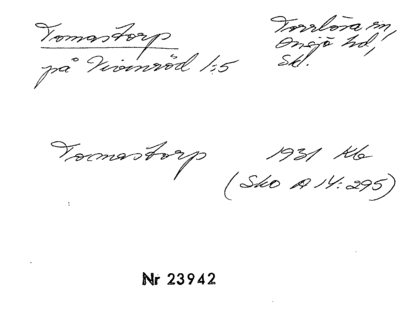 Tomastorp
på Vivinröd 1:5
Torrlösa sn,
Onsjö hd,
Sk.
Tomastorp
1931 Kb
(Sko A 14:295)
Nr 23942